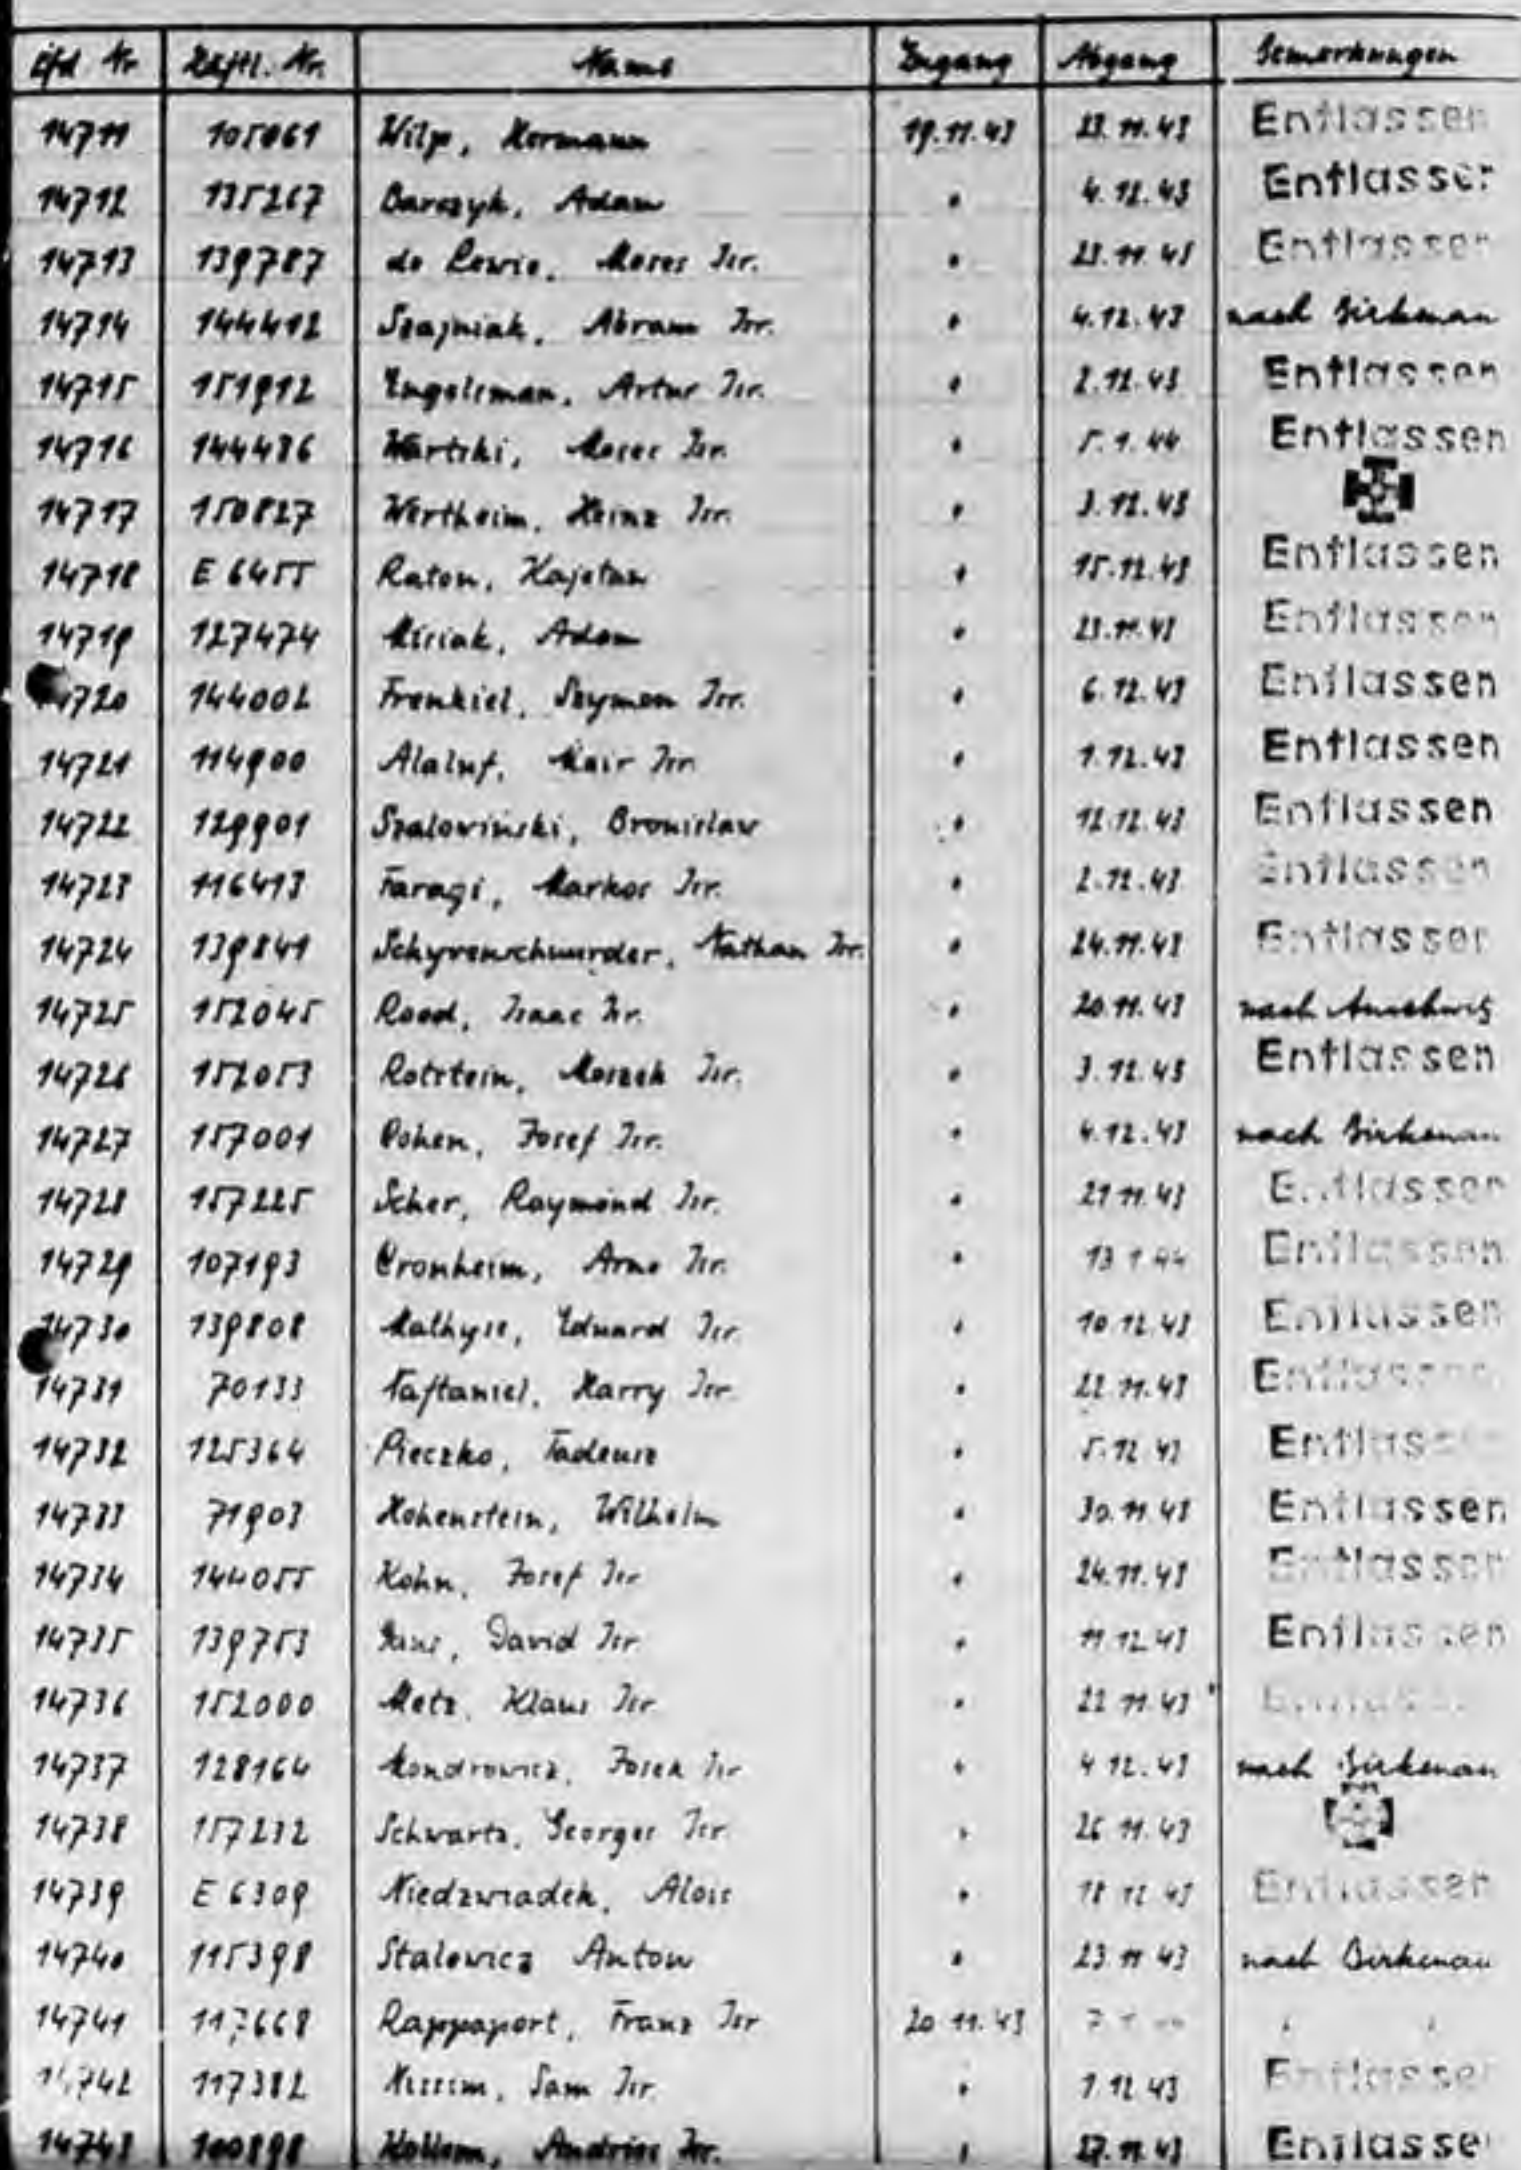 Lfd Nr Häftl. Nr. Name Zugang Abgang Bemerkungen
14711 105061 Wilp, Hermann 19.11.43 23.11.43 Entlassen
14712 135267 Barczyk, Adam " 4.12.43 Entlassen
14713 139787 de Lewie, Moses Isr. " 23.11.43 Entlassen
14714 144412 Szajniak, Abram Isr. " 4.12.43 nach Birkenau
14715 151912 Engelsman, Artur Isr. " 2.12.43 Entlassen
14716 144486 Wartski, Moses Isr. " 5.1.44 Entlassen
14717 150827 Wertheim, Heinz Isr. " 3.12.43
14718 E 6455 Raton, Kajetan " 15.12.43 Entlassen
14719 127474 Misiak, Adam " 23.11.43 Entlassen
14720 144002 Frenkiel, Szymon Isr. " 6.12.43 Entlassen
14721 114900 Alaluf, Mair Isr. " 1.12.43 Entlassen
14722 129901 Szalowinski, Bronislaw " 12.12.43 Entlassen
14723 116413 Faragi, Markos Isr. " 2.12.43 Entlassen
14724 139841 Nathan Isr. " 24.11.43 Entlassen
14725 152045 Rood, Isaac Isr. " 20.11.43 nach Auschwitz
14726 152053 Rotstein, Moszek Isr. " 3.12.43 Entlassen
14727 157001 Cohen, Josef Isr. " 4.12.43 nach Birkenau
14728 157225 Scher, Raymond Isr. " 21.11.43 Entlassen
14729 107193 Cronheim, Arno Isr. " 13.1.44 Entlassen
14730 139808 Mathyse, Eduard Isr. " 10.12.43 Entlassen
14731 70133 Naftaniel, Harry Isr. " 22.11.43 Entlassen
14732 125364 Pieczko, Tadeusz " 5.12.43 Entlassen
14733 71903 Hohenstein, Wilhelm " 30.11.43 Entlassen
14734 144055 Kohn, Josef Isr " 24.11.43 Entlassen
14735 139753 David Isr. " 11.12.43 Entlassen
14736 152000 Metz, Klaus Isr " 22.11.43 Entlassen
14737 128164 Mondrowicz, Josek Isr " 4.12.43 nach Birkenau
14738 157232 Schwartz, Georges Isr. " 26.11.43
14739 E 6309 Niedzwiadek, Alois " 18.12.43 Entlassen
14740 115398 Stalewicz Anton " 23.11.43 nach Birkenau
14741 117668 Rappaport, Franz Isr 20.11.43 " "
14742 117382 Nissim, Sam Isr. " 1.12.43 Entlassen
14743 100898 Andries Isr. " 27.11.43 Entlassen